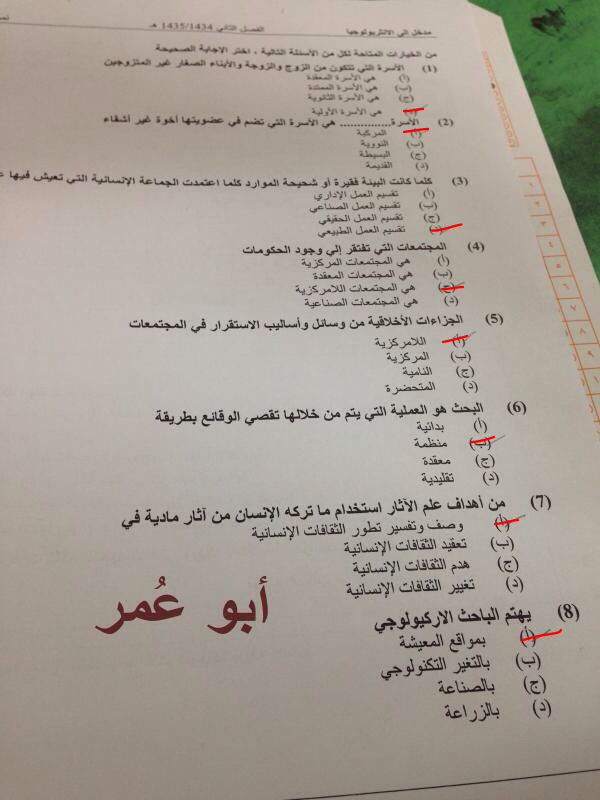 مدخل إلى الانثربولوجيا
الفصل الثاني 1435/1434 هـ
من الخيارات المتاحة لكل من الأسئلة التالية ، اختر الإجابة الصحيحة
(1) الأسرة التي تتكون من الزوج والزوجة والأبناء الصغار غير المتزوجين
(أ) هي الأسرة المعقدة
(ب) هي الأسرة الممتدة
(ج) هي الأسرة الثانوية
(د) هي الأسرة الأولية
(2) الأسرة.............. هي الأسرة التي تضم في عضويتها أخوة غير أشقاء
(أ) المركبة
(ب) النووية
(ج) البسيطة
(د) القديمة
(3) كلما كانت البيئة فقيرة أو شحيحة الموارد كلما اعتمدت الجماعة الإنسانية التي تعيش فيها
(أ) تقسيم العمل الإداري
(ب) تقسيم العمل الصناعي
(ج) تقسيم العمل الحقيقي
(د) تقسيم العمل الطبيعي
(4) المجتمعات التي تفتقر إلي وجود الحكومات
(أ) هي المجتمعات المركزية
(ب) هي المجتمعات المعقدة
(ج) هي المجتمعات اللامركزية
(د) هي المجتمعات الصناعية
(5) الجزاءات الأخلاقية من وسائل وأساليب الاستقرار في المجتمعات
(أ) اللامركزية
(ب) المركزية
(ج) النامية
(د) المتحضرة
(6) البحث هو العملية التي يتم من خلالها تقصي الوقائع بطريقة
(أ) بدائية
(ب) منظمة
(ج) معقدة
(د) تقليدية
(7) من أهداف علم الآثار استخدام ما تركه الإنسان من آثار مادية في
(أ) وصف وتفسير تطور الثقافات الإنسانية
(ب) تعقيد الثقافات الإنسانية
(ج) هدم الثقافات الإنسانية
(د) تغيير الثقافات الإنسانية
(8) يهتم الباحث الاركيولوجي
(أ) بمواقع المعيشة
(ب) بالتغير التكنولوجي
(ج) بالصناعة
(د) بالزراعة
أبو عُمر